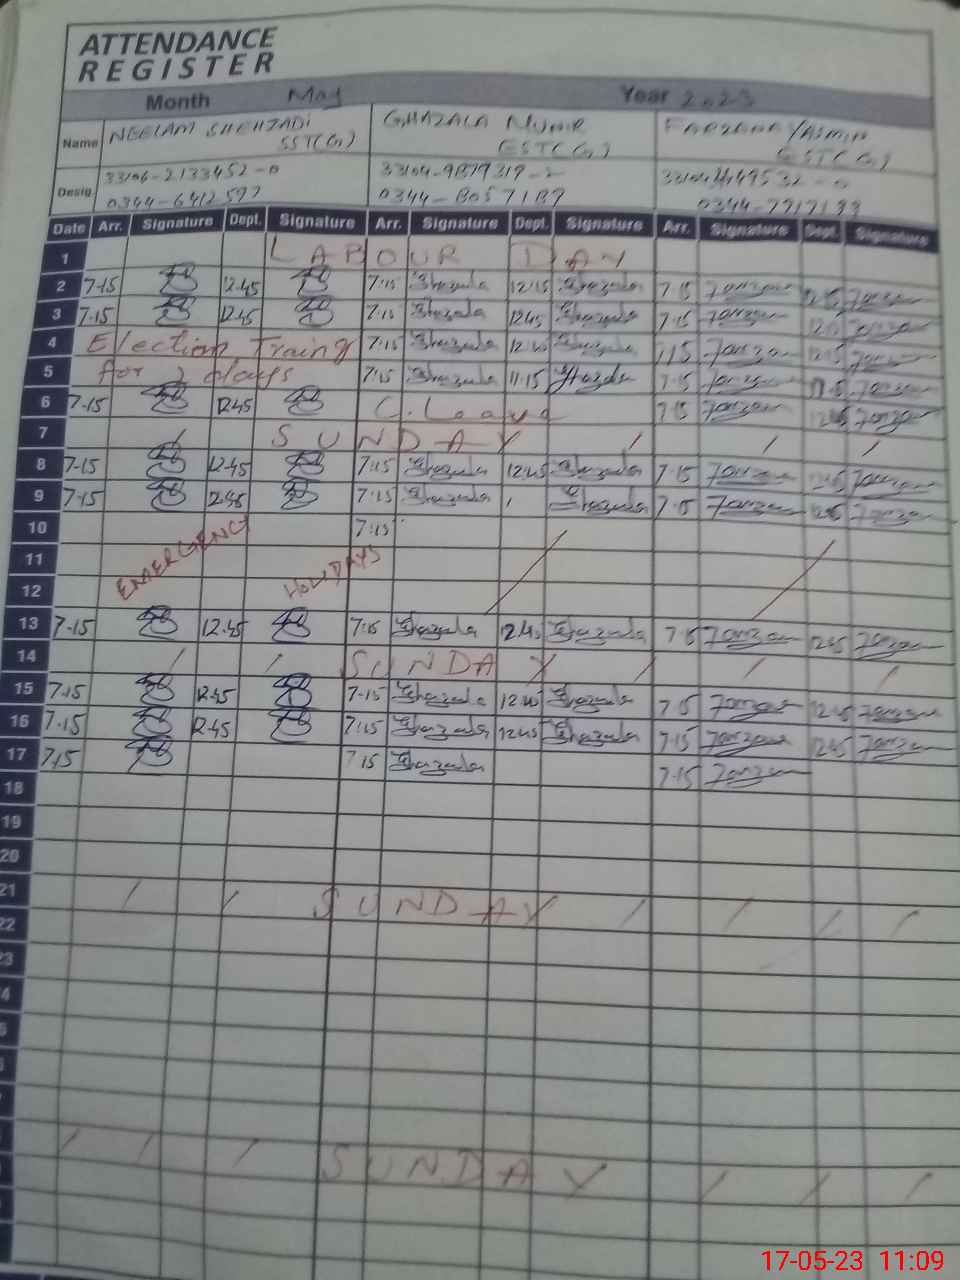 ATTENDANCE
REGISTER
Month May Year 2023
Name NEELAM SHEHZADI GHAZALA MUNIR FARZANA YASMIN
SST(G) ESTC(G) ESTC(G)
Desig. 33106-2133452-0 33104-9879319-2
0344-6412597 0344-8057187
Date Arr. Signature Dept. Signature Arr. Signature Dept. Signature Arr. Signature Dept. Signature
1 LABOUR DAY
2 7-15 12.45 7:15 Ghazala 12:15 Ghazala 7.15 Farzana Farzana
3 7.15 12.45 7:15 Ghazala 12.45 Ghazala 7.15 Farzana Farzana
4 Election Traing 7:15 Ghazala Ghazala Farzana 12.15 Farzana
5 for 2 days 7:15 Ghazala 11.15 Ghazala 7.15 Farzana Farzana
6 7-15 12.45 C. Leave 7.15 Farzana Farzana
7 SUNDAY
8 7-15 12.45 7:15 Ghazala 12.45 Ghazala 7.15 Farzana Farzana
9 7-15 12.45 7:15 Ghazala Ghazala Farzana Farzana
10 7:15
11 EMERGENCY HOLIDAYS
12
13 7-15 12.45 7:15 Ghazala 12.45 Ghazala Farzana 12.45 Farzana
14 SUNDAY
15 7.15 12.45 7-15 Ghazala Ghazala Farzana 12.45 Farzana
16 7.15 12.45 7:15 Ghazala 12.45 Ghazala 7.15 Farzana 12.45 Farzana
17 7.15 7.15 Ghazala 7.15 Farzana
18
19
20
21 SUNDAY
22
23
4
SUNDAY
17-05-23 11:09